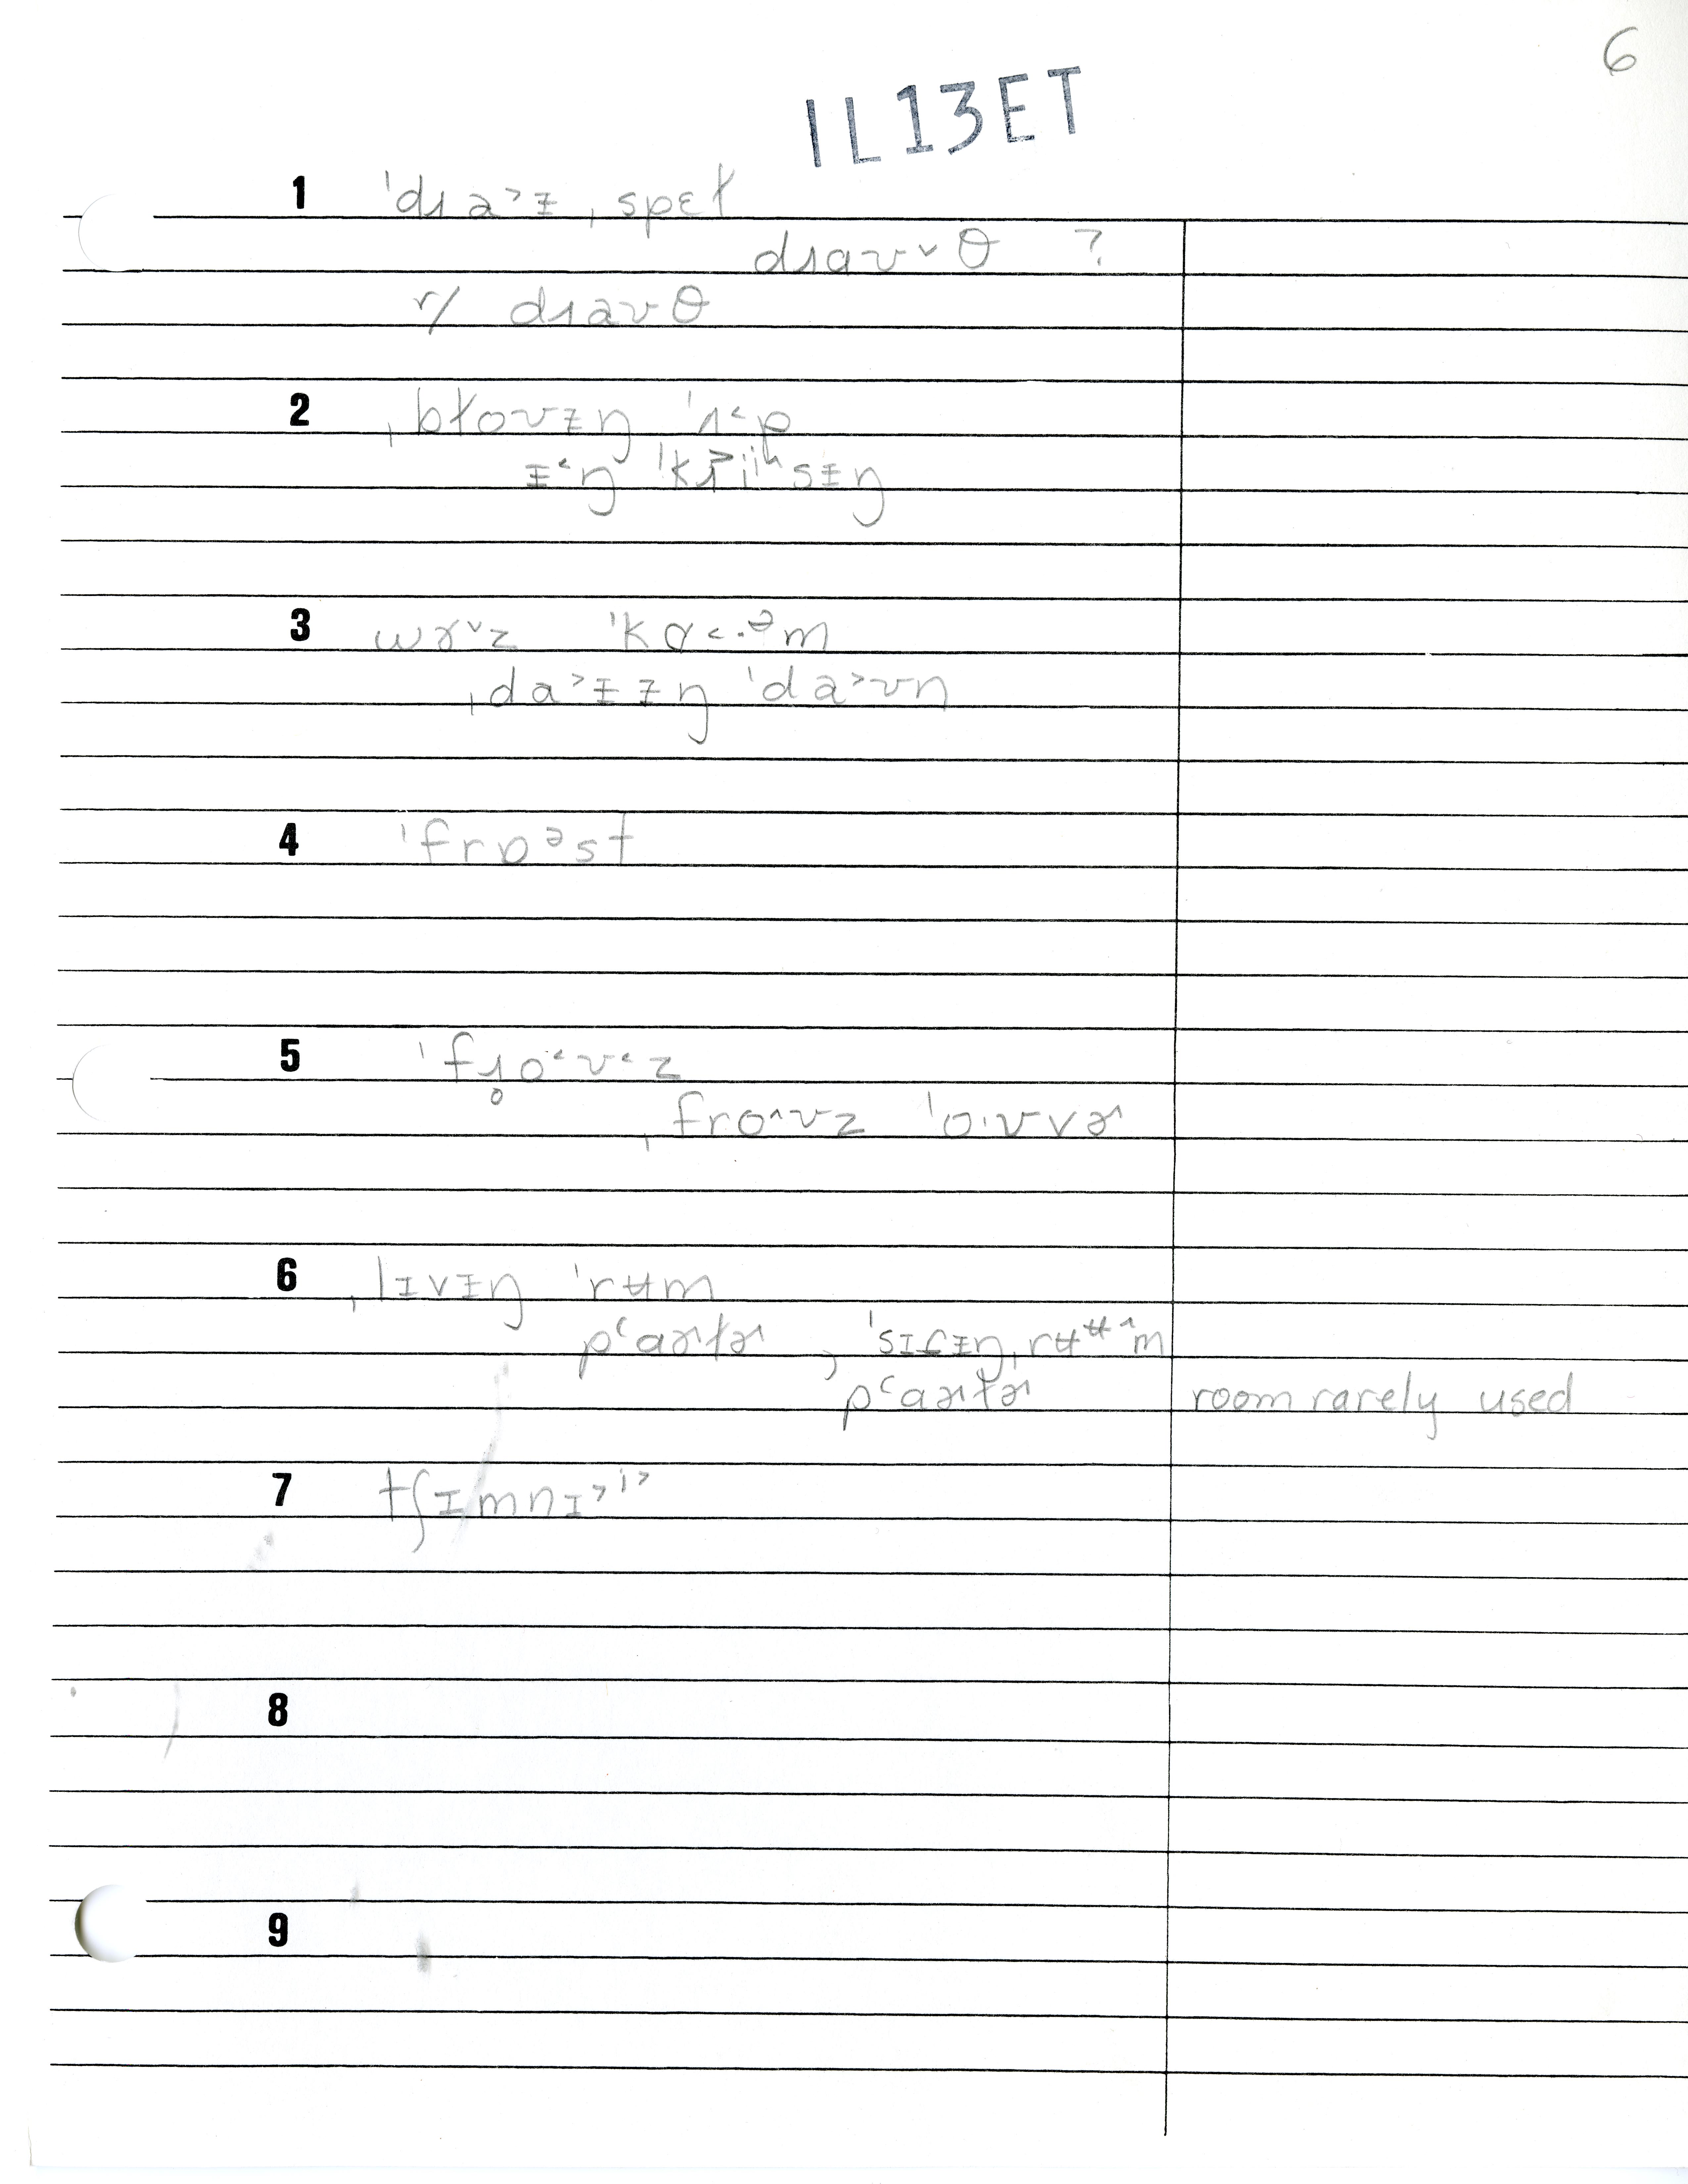 6
IL13ET
1 ˈdɹa˃ɪ̵ z ˌspɛɫ
dɹaʊ˅θ ?
r/ dɹaʊθ
2 ˌbɫoʊɪ̵ŋ ˈʌ˂p
3 wɤ˅z ˈkɑ˂·ᵊm
ˌda˃ɪ̵ɪ̵ŋ ˈda˃ʊn
4 ˈfrɒᵊst
5 ˈfɹ̥o˂ʊ˂z
ˌfro^ʊz ˈo·ʊvɚ
6 ˌlɪvɪ̵ŋ ˈrʉm
pʻaɚɫɚ , ˈsɪɾɪ̵ŋˌrʉᵿ^m
pʻaɚɫɚ room rarely used
7 tʃɪmnɪ˃ⁱ˃
8
9